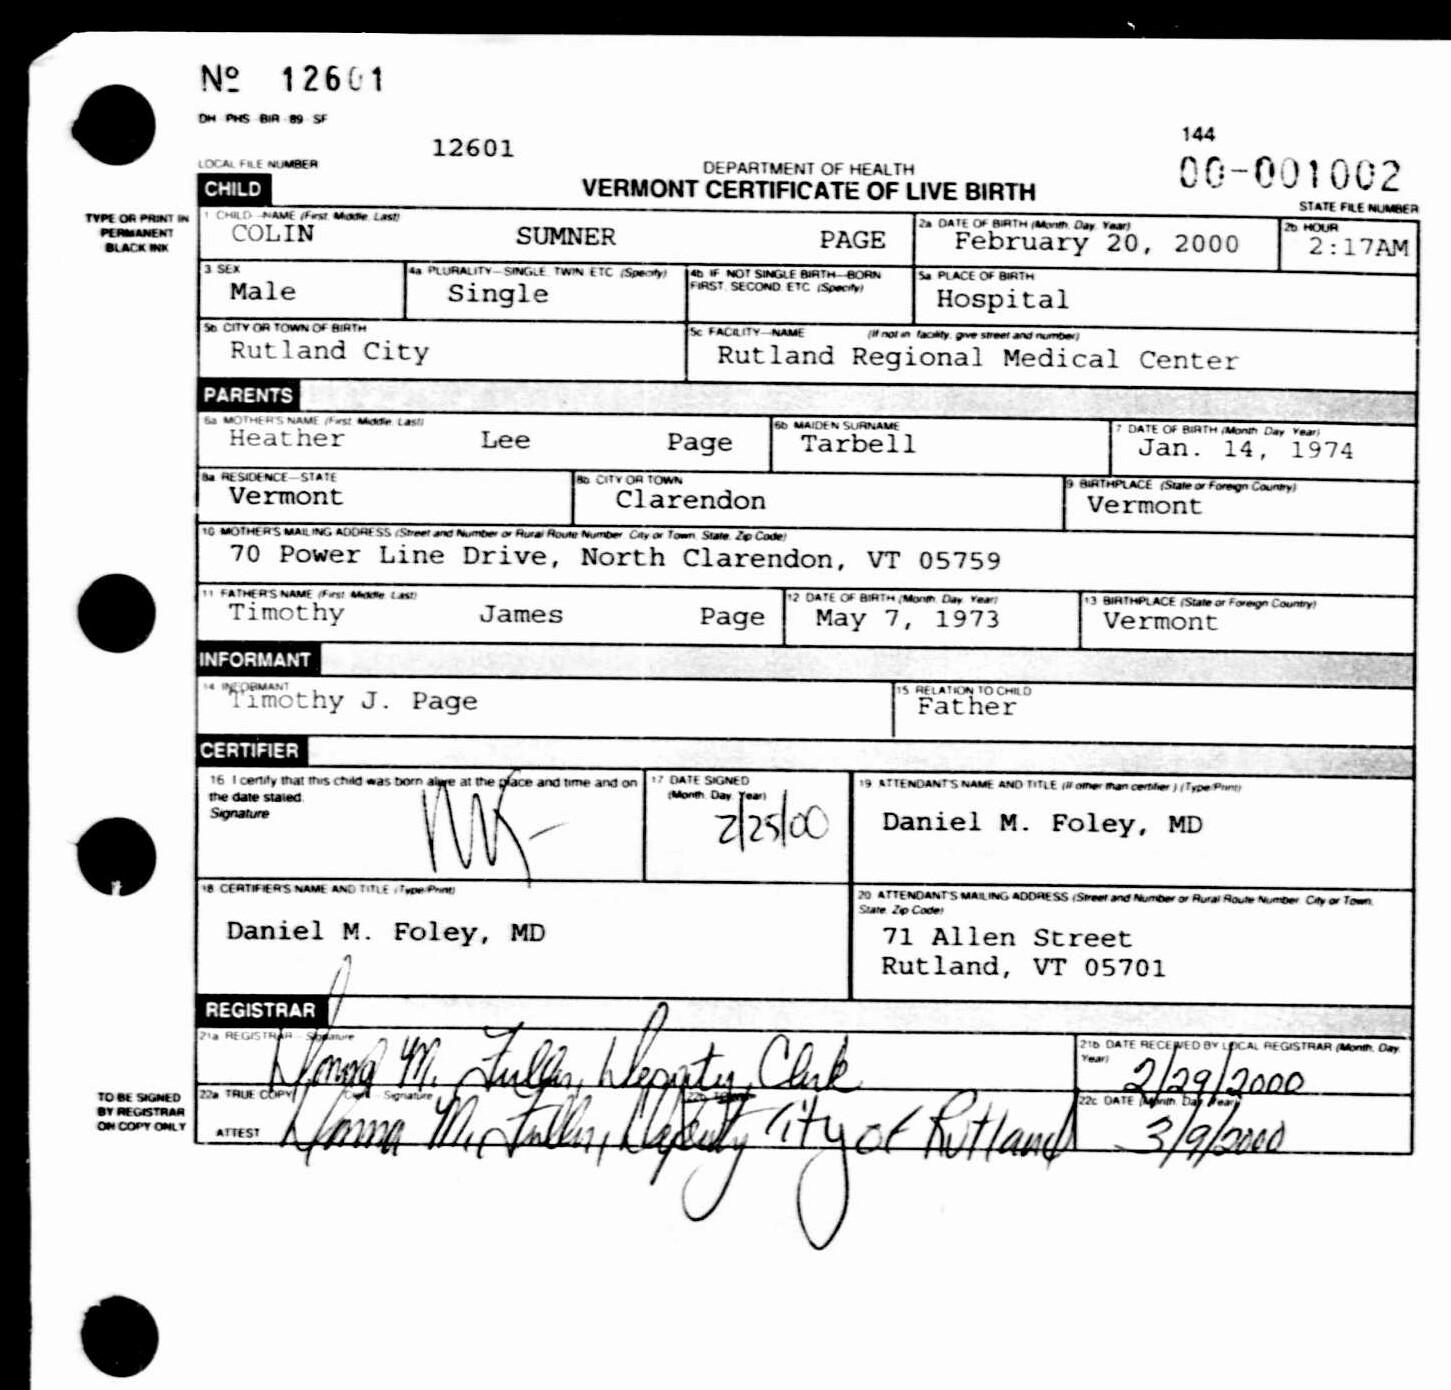 Nº 12601
DH-PHS-BIR-89-SF
12601
144
LOCAL FILE NUMBER
DEPARTMENT OF HEALTH
00-001002
CHILD
VERMONT CERTIFICATE OF LIVE BIRTH
STATE FILE NUMBER
TYPE OR PRINT IN PERMANENT BLACK INK
1 CHILD—NAME (First, Middle, Last)
COLIN SUMNER PAGE
2a DATE OF BIRTH (Month, Day, Year)
February 20, 2000
2b HOUR
2:17AM
3 SEX
Male
4a PLURALITY—SINGLE, TWIN, ETC (Specify)
Single
4b IF NOT SINGLE BIRTH—BORN FIRST, SECOND, ETC (Specify)
5a PLACE OF BIRTH
Hospital
5b CITY OR TOWN OF BIRTH
Rutland City
5c FACILITY—NAME (If not in facility, give street and number)
Rutland Regional Medical Center
PARENTS
6a MOTHER'S NAME (First, Middle, Last)
Heather Lee Page
6b MAIDEN SURNAME
Tarbell
7 DATE OF BIRTH (Month, Day, Year)
Jan. 14, 1974
8a RESIDENCE—STATE
Vermont
8b CITY OR TOWN
Clarendon
9 BIRTHPLACE (State or Foreign Country)
Vermont
10 MOTHER'S MAILING ADDRESS (Street and Number or Rural Route Number, City or Town, State, Zip Code)
70 Power Line Drive, North Clarendon, VT 05759
11 FATHER'S NAME (First, Middle, Last)
Timothy James Page
12 DATE OF BIRTH (Month, Day, Year)
May 7, 1973
13 BIRTHPLACE (State or Foreign Country)
Vermont
INFORMANT
14 INFORMANT
Timothy J. Page
15 RELATION TO CHILD
Father
CERTIFIER
16 I certify that this child was born alive at the place and time and on
the date stated.
Signature
17 DATE SIGNED
(Month, Day, Year)
2/25/00
19 ATTENDANT'S NAME AND TITLE (If other than certifier) (Type/Print)
Daniel M. Foley, MD
18 CERTIFIER'S NAME AND TITLE (Type/Print)
Daniel M. Foley, MD
20 ATTENDANT'S MAILING ADDRESS (Street and Number or Rural Route Number, City or Town,
State, Zip Code)
71 Allen Street
Rutland, VT 05701
REGISTRAR
21a REGISTRAR—Signature
Donna M. Fuller, Deputy Clerk
21b DATE RECEIVED BY LOCAL REGISTRAR (Month, Day, Year)
2/29/2000
TO BE SIGNED
BY REGISTRAR
ON COPY ONLY
22a TRUE COPY Signature
ATTEST
Donna M. Fuller, Deputy City of Rutland
22c DATE (Month, Day, Year)
3/9/2000